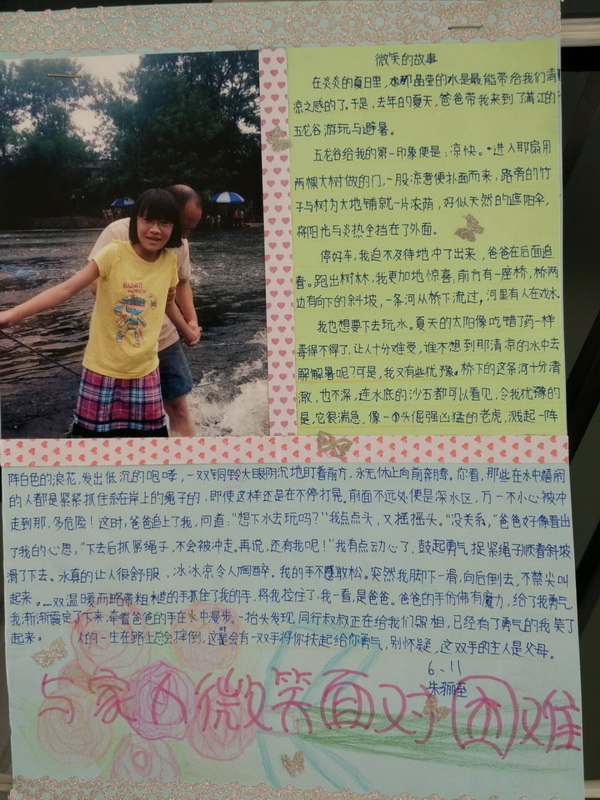 微笑的故事
在炎炎的夏日里,那晶莹的水是最能带给我们清
凉之感的了。于是,去年的夏天,爸爸带我来到了蒲江的
五龙谷游玩与避暑。
五龙谷给我的第一印象便是:凉快。进入那扇用
两棵大树做的门,一股凉意便扑面而来,路旁的竹
子与树为大地铺就一片浓荫,好似天然的遮阳伞,
将阳光与炎热全挡在了外面。
停好车,我迫不及待地冲了出来,爸爸在后面追
着。跑出树林,我更加地惊喜,前方有一座桥,桥两
边有向下的斜坡,一条河从桥下流过,河里有人在戏水。
我也想要下去玩水。夏天的太阳像吃错了药一样
毒得不得了,让人十分难受,谁不想到那清凉的水中去
解解暑呢?可是,我又有些犹豫。桥下的这条河十分清
澈,也不深,连水底的沙石都可以看见,令我犹豫的
是,它很湍急,像一头倔强凶猛的老虎,溅起一阵
阵白色的浪花,发出低沉的咆哮,一双铜铃大眼阴沉地盯着前方,永无休止向前奔腾。你看,那些在水中嬉闹
的人都是紧紧抓住系在岸上的绳子的,即使这样还是在不停打晃。前面不远处便是深水区,万一不小心被冲
走到那,多危险!这时,爸爸追上了我,问道:“想下水去玩吗?”我点点头,又摇摇头。“没关系,”爸爸好像看出
了我的心思,“下去后抓紧绳子,不会被冲走。再说,还有我呢!”我有点动心了,鼓起勇气,捉紧绳子顺着斜坡
滑了下去。水真的让人很舒服,冰冰凉令人陶醉。我的手不敢松。突然我脚下一滑,向后倒去,不禁尖叫
起来。一双温暖而略带粗糙的手抓住了我的手,将我拉住了,我一看,是爸爸。爸爸的手仿佛有魔力,给了我勇气,
我渐渐镇定了下来,牵着爸爸的手在水中漫步。一抬头发现,同行叔叔正在给我们照相,已经有了勇气的我笑了
起来。人的一生在路上总会摔倒,这里会有一双手将你扶起给你勇气,别怀疑,这双手的主人是父母。
6.11
与家人微笑面对困难